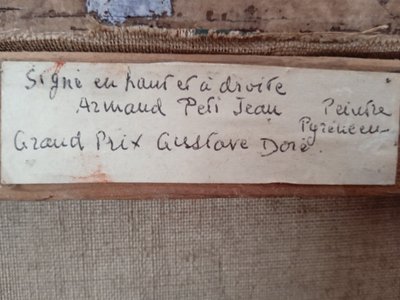 Signé en haut et à droite
Armand Peti Jean Peintre
Pyrénéen
Grand Prix Gustave Doré.